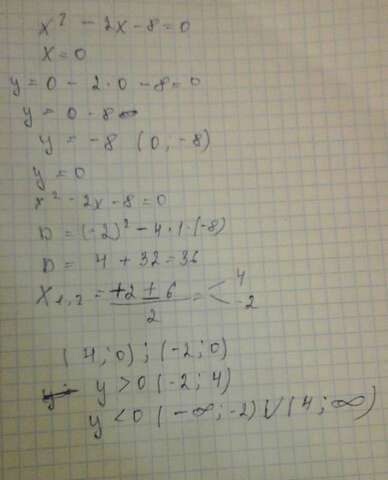 x² - 2x - 8 = 0
x = 0
y = 0 - 2·0 - 8 = 0
y = 0 - 8
y = -8 (0, -8)
y = 0
x² - 2x - 8 = 0
D = (-2)² - 4·1·(-8)
D = 4 + 32 = 36
X₁,₂ = +2 ± 6 / 2 = < 4 -2
(4; 0); (-2; 0)
y > 0 (-2; 4)
y < 0 (-∞; -2) ∪ (4; ∞)